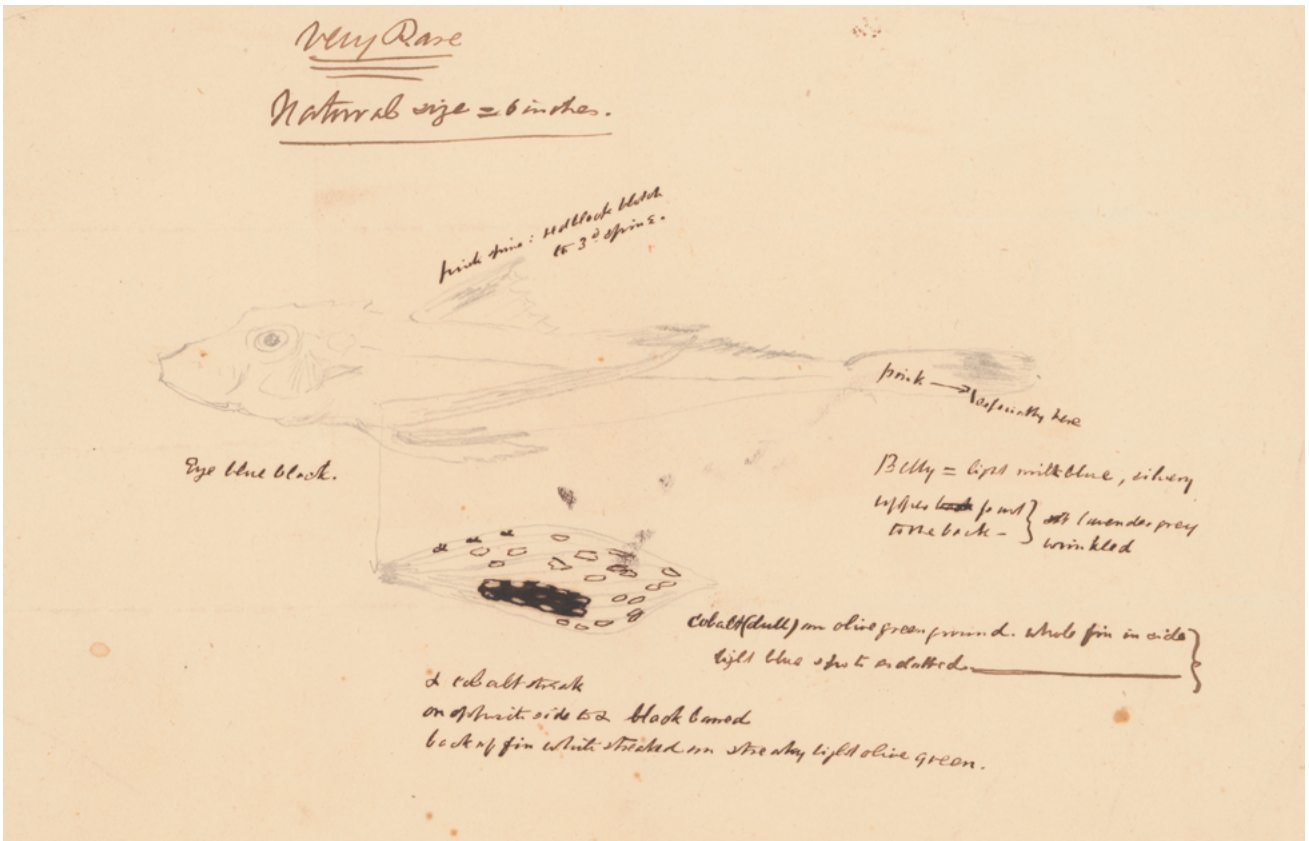 Very Rare
Natural size = 6 inches.
pink spine: black blotch
to 3d spine.
pink →
especially here
Eye blue black.
Belly = light milk blue, silvery
upper part
to the back –
lavender grey
wrinkled
α α α
cobalt (dull) on olive green ground. whole fin in side
light blue spots as dotted
α cobalt streak
on opposite side to α black barred
back of fin white streaked on streaky light olive green.